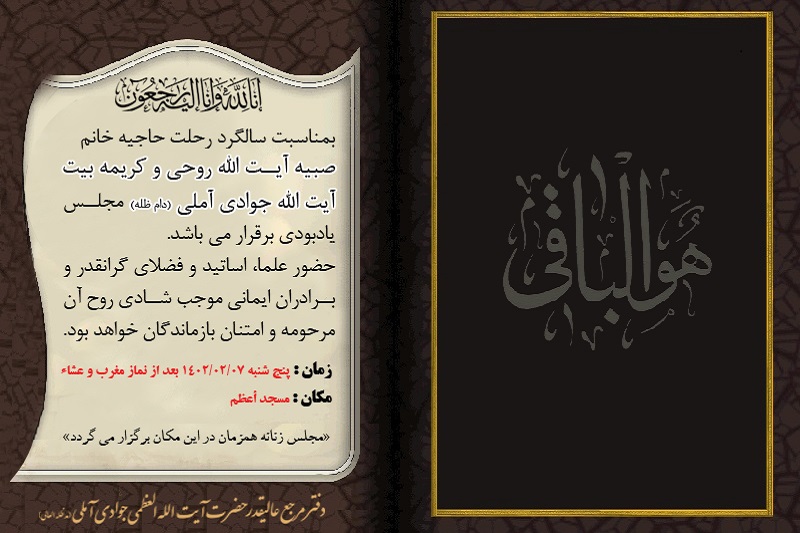 هو الباقی
انا لله و انا الیه راجعون
بمناسبت سالگرد رحلت حاجیه خانم
صبیه آیــت الله روحی و کریمه بیت
آیت الله جوادی آملی (دام ظله) مجلــس
یادبودی برقرار می باشد.
حضور علما، اساتید و فضلای گرانقدر و
بــرادران ایمانی موجب شــادی روح آن
مرحومه و امتنان بازماندگان خواهد بود.
زمان : پنج شنبه ۱۴۰۲/۰۲/۰۷ بعد از نماز مغرب و عشاء
مکان : مسجد أعظم
«مجلس زنانه همزمان در این مکان برگزار می گردد»
دفتر مرجع عالیقدر حضرت آیت الله العظمی جوادی آملی (مد ظله العالی)